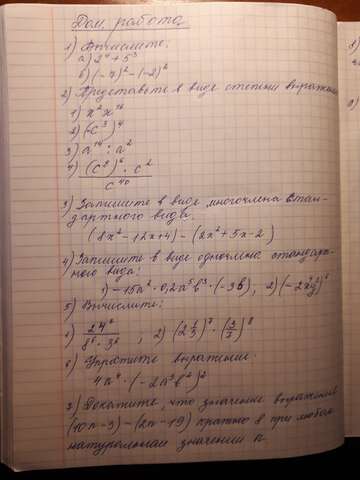 Дом. работа
1) Вычислите:
а) 2⁴ + 5³
б) (-7)² - (-2)²
2) Представьте в виде степени выражение
1) x² x¹⁶
2) (-c³)⁴
3) a¹⁴ : a²
4) (c⁵)⁶ · c² / c⁴⁰
3) Запишите в виде многочлена стан-
дартного вида.
(8x² - 12x + 4) - (2x² + 5x - 2)
4) Запишите в виде одночлена стандарт-
ного вида:
1) -15a² · 0,2a⁵b³ · (-3b),
5) Вычислите:
24⁶ / 8⁶ · 3⁶, 2) (2⅓)⁷ · (3/7)⁸
6) Упростите выражение.
4a⁴ · (-2a³b²)²
7) Докажите, что значение выражения
(10n-3) - (2n-19) кратно 8 при любом
натуральном значении n.